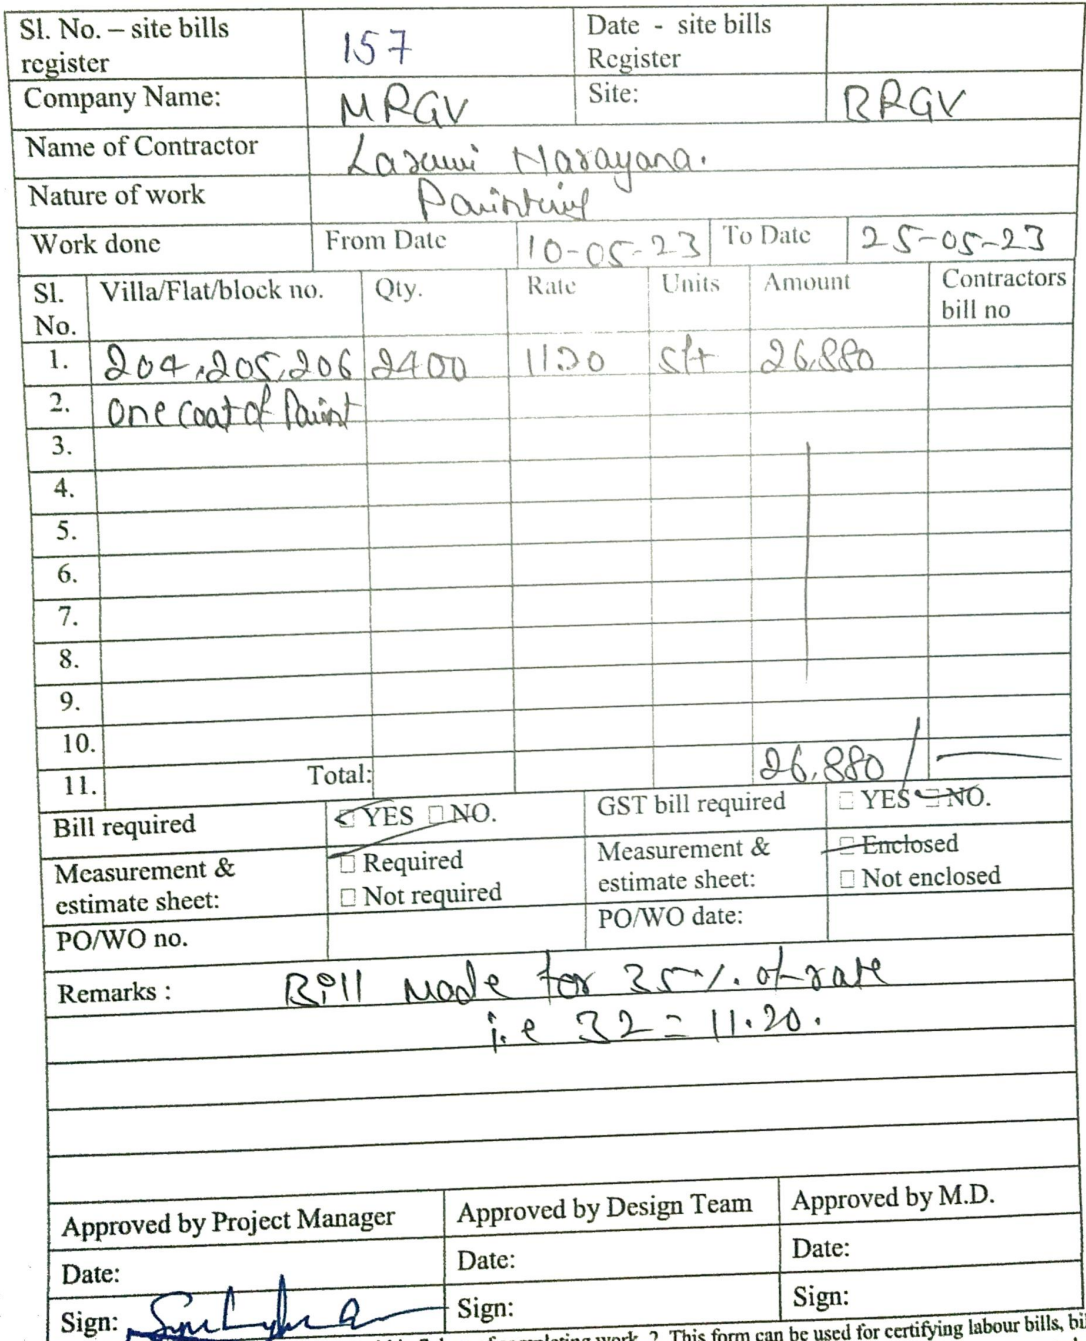 Sl. No. – site bills register 157 Date - site bills Register
Company Name: MRGV Site: BRGV
Name of Contractor Laxmi Narayana.
Nature of work Painting
Work done From Date 10-05-23 To Date 25-05-23
Sl. No. Villa/Flat/block no. Qty. Rate Units Amount Contractors bill no
1. 204, 205, 206 2400 11.20 sft 26,880
2. One coat of Paint
3.
4.
5.
6.
7.
8.
9.
10.
11. Total: 26,880/
Bill required YES NO. GST bill required YES NO.
Measurement & estimate sheet: Required Measurement & estimate sheet: Enclosed
Not required Not enclosed
PO/WO no. PO/WO date:
Remarks : Bill Made for 35%. of rate
i.e 32 = 11.20.
Approved by Project Manager Approved by Design Team Approved by M.D.
Date: Date: Date:
Sign: Sign: Sign:
work. 2. This form can be used for certifying labour bills,